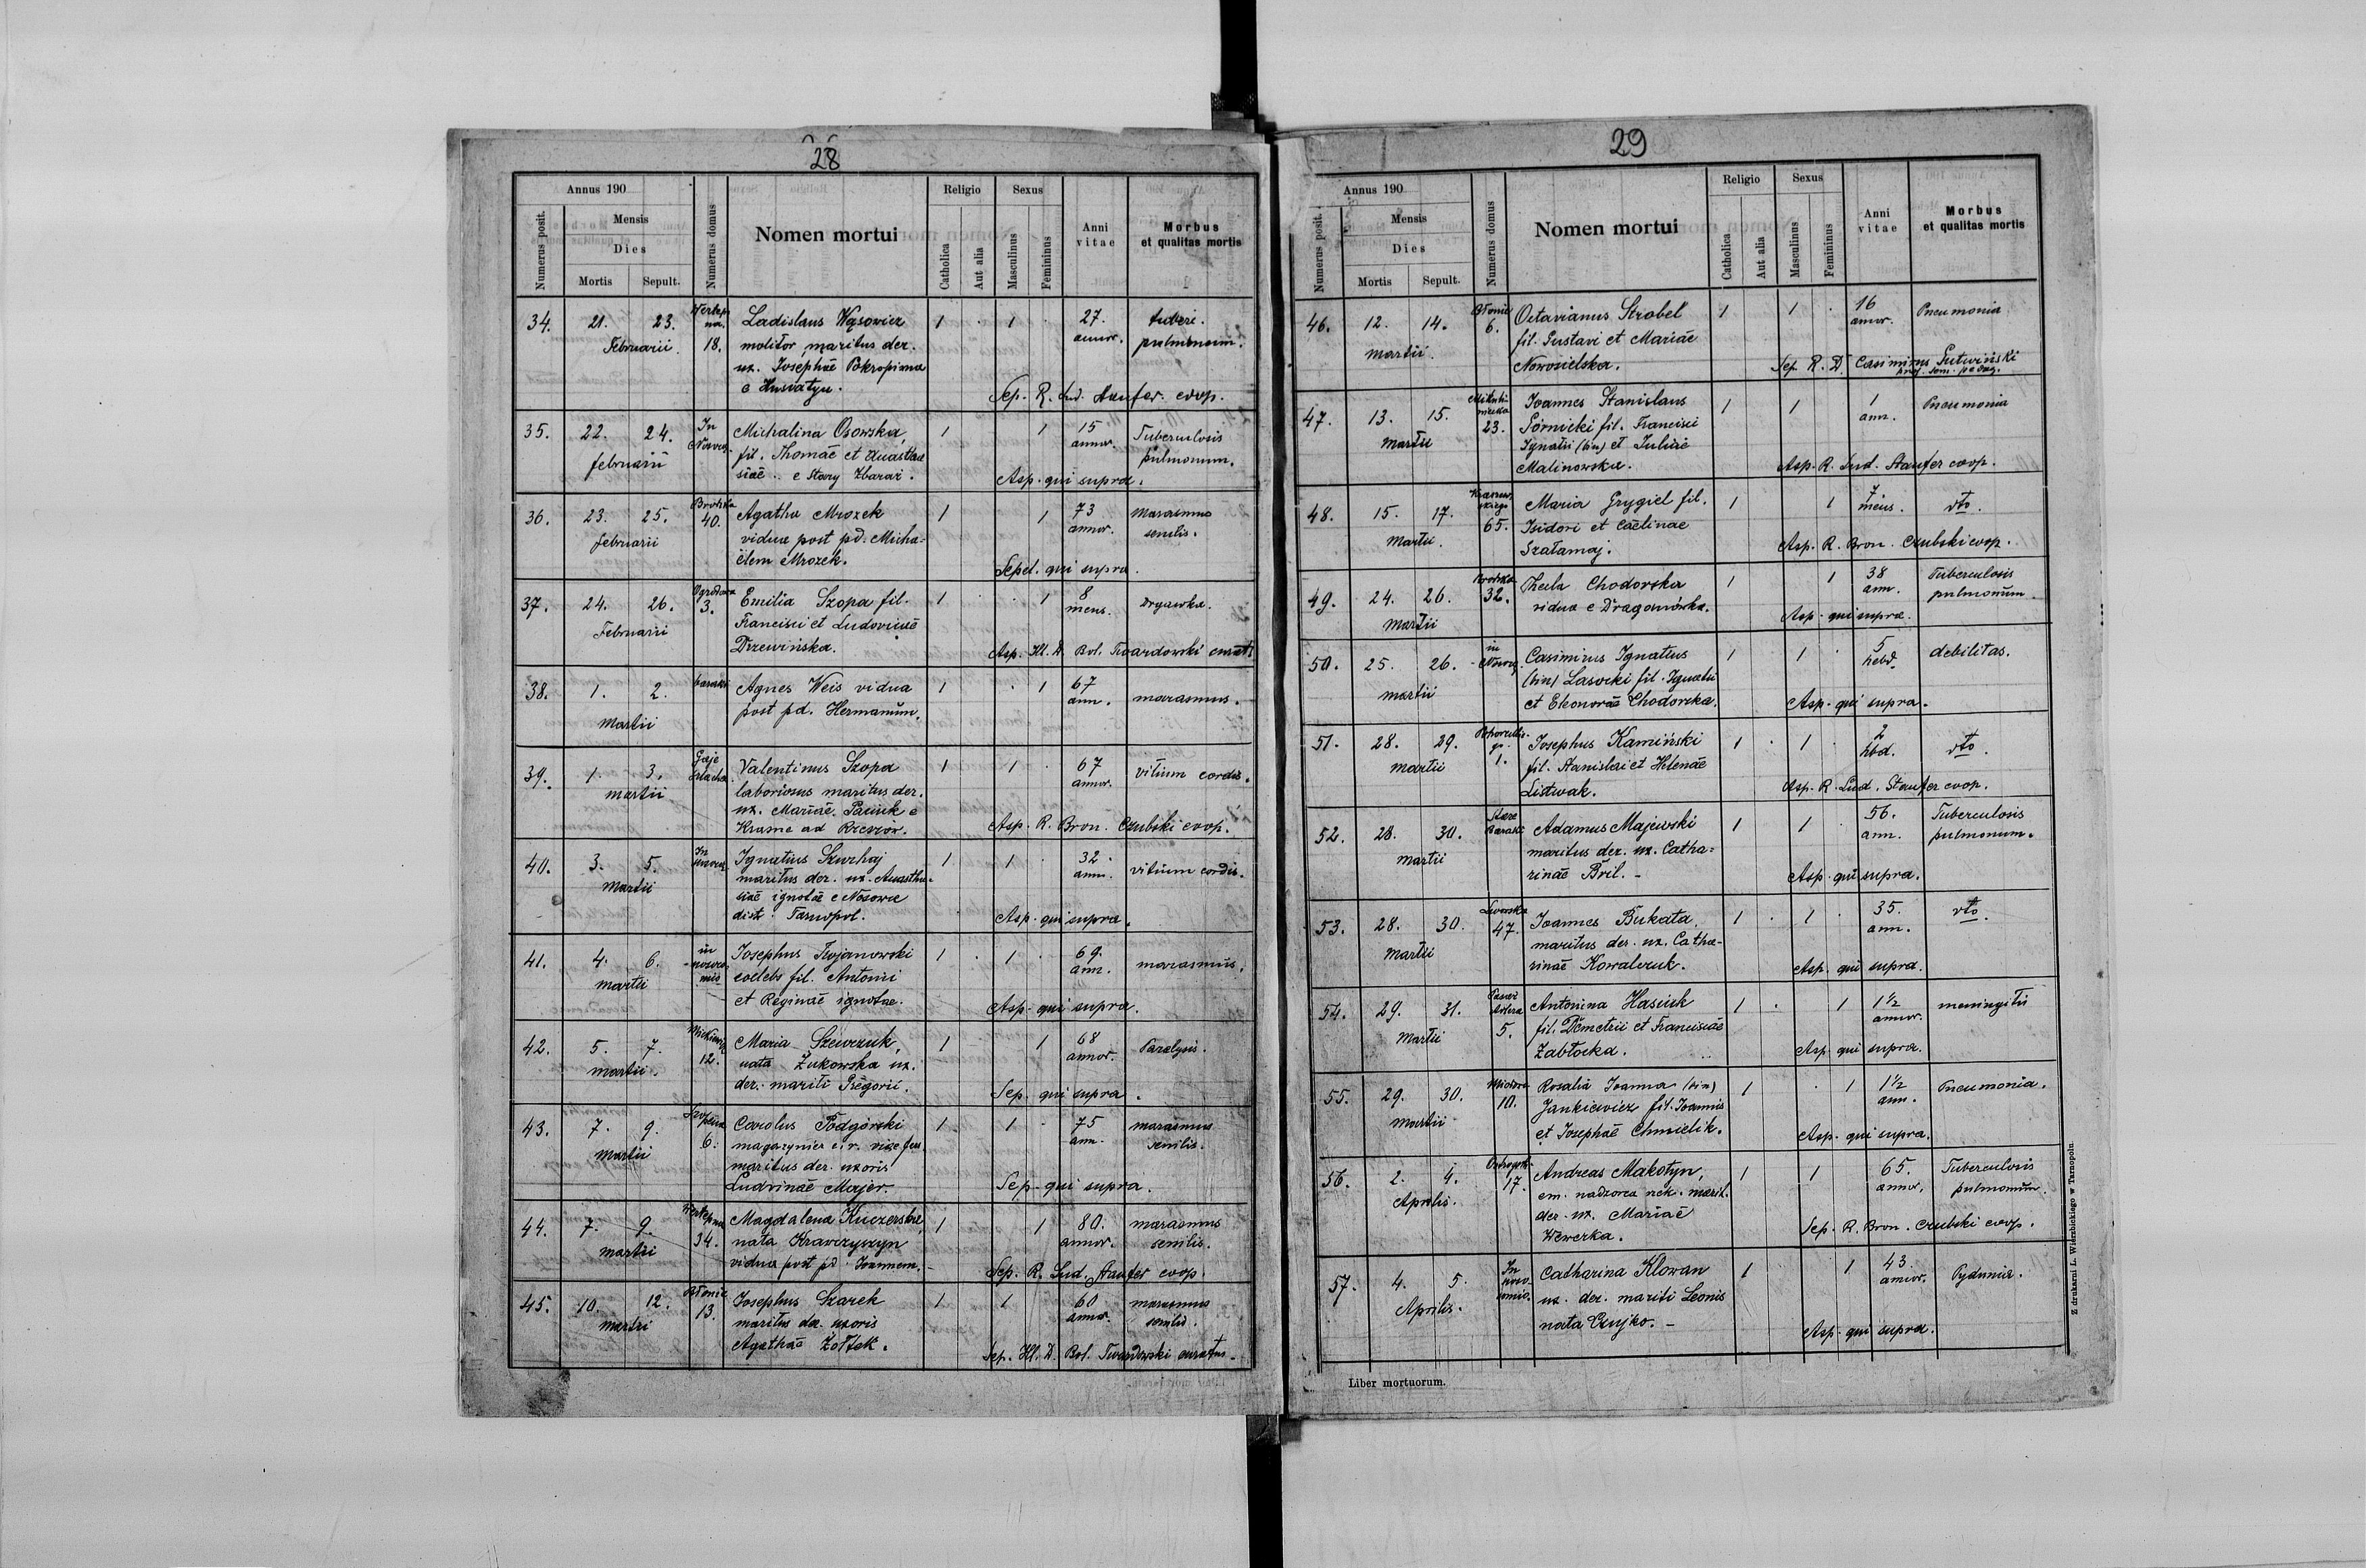 28
Annus 190
Numerus posit.
Mensis
Dies
Mortis
Sepult.
Numerus domus
Nomen mortui
Religio
Catholica
Aut alia
Sexus
Masculinus
Femininus
Anni vitae
Morbus et qualitas mortis
34. 21. 23. Februarii 18. Ladislaus Wąsowicz 1 1 27. annor. tuberc. pulmonum.
molitor maritus der.
ux. Josephae Pokropiwna
e Husiatyn.
Sep. R. Lud. Staufer coop.
35. 22. 24. februarii In Michalina Osowska, 1 1 15 annor. Tuberculosis pulmonum.
fil. Thomae et Anastha
siae e Stary Zbaraż.
Asp. qui supra.
36. 23. 25. februarii 40. Agatha Mrozek 1 1 73 annor. marasmus senilis.
vidua post pd. Micha=
ëlem Mrozek.
Sepel. qui supra.
37. 24. 26. Februarii Ogrodowa 3. Emilia Szopa fil. 1 1 8 mens. Drgawka.
Francisci et Ludovicae
Drzewińska.
Asp. Ill. D. Bol. Twardowski curat.
38. 1. 2. Martii baraki Agnes Weis vidua 1 1 67 ann. marasmus.
post pd. Hermanum.
39. 1. 3. martii Gaje Valentinus Szopa 1 1 67 annor. vitium cordis.
laboriosus maritus der.
ux. Mariae Paciuk e
Krasne ad Rzeszów.
Asp. R. Bron. Czubski coop.
40. 3. 5. Martii In Ignatius Szurhaj 1 1 32 ann. vitium cordis.
maritus der. ux. Anastha=
siae ignotae e Nosowce
dist. Tarnopol.
Asp. qui supra.
41. 4. 6. martii in Josephus Trojanowski 1 1 69. ann. marasmus.
coelebs fil. Antonii
et Reginae ignotae.
Asp. qui supra.
42. 5. 7. martii. Mickiewicz 12. Maria Szewczuk, 1 1 68 annor. Paralysis.
nata Żukowska ux.
der. mariti Gregorii.
Sep. qui supra.
43. 7. 9. Martii 6. Carolus Podgórski 1 1 75 ann. marasmus senilis.
magazynier
maritus der. uxoris
Ludvinae Majer.
Sep. qui supra.
44. 7. 9. martii 34. Magdalena Kuczerska 1 1 80. annor. marasmus senilis.
nata Krawczyszyn
vidua post pd. Joannem.
Sep. R. Lud. Staufer coop.
45. 10. 12. martii Błonie 13. Josephus Szarek 1 1 60 annor. marasmus senilis.
maritus der. uxoris
Agathae Żołtek.
Sep. Ill. D. Bol. Twardowski curatus
29
Annus 190
Numerus posit.
Mensis
Dies
Mortis
Sepult.
Numerus domus
Nomen mortui
Religio
Catholica
Aut alia
Sexus
Masculinus
Femininus
Anni vitae
Morbus et qualitas mortis
46. 12. 14. martii. Błonie 6. Octavianus Strobel 1 1 16 annor. Pneumonia
fil. Gustavi et Mariae
Nowosielska.
Sep. R. D. Casimirus Gutwiński
47. 13. 15. Martii 23. Joannes Stanislaus 1 1 1 ann. Pneumonia
Górnicki fil. Francisci
Ignatii (bin) et Juliae
Malinowska.
Asp. R. Lud. Staufer coop.
48. 15. 17. Martii. 65. Maria Grygiel fil. 1 1 7 mens. dto.
Isidori et Caelinae
Szałamaj.
Asp. R. Bron. Czubski coop.
49. 24. 26. Martii 32. Thecla Chodorska 1 1 38 ann. Tuberculosis pulmonum.
vidua e Dragonówka.
Asp. qui supra.
50. 25. 26. martii in Casimirus Ignatius 1 1 5 hebd. debilitas.
(bin) Lasocki fil. Ignatii
et Eleonorae Chodorska.
Asp. qui supra.
51. 28. 29. martii 1. Josephus Kamiński 1 1 2 hbd. dto.
fil. Stanislai et Helenae
Listwak.
Asp. R. Lud. Staufer coop.
52. 28. 30. martii Stare Baraki Adamus Majewski 1 1 56. ann. Tuberculosis pulmonum.
maritus der. ux. Catha=
rinae Bril.
Asp. qui supra.
53. 28. 30. Martii Lwowska 47. Joannes Bukata 1 1 35. ann. dto.
maritus der. ux. Catha-
rinae Kowalczuk.
Asp. qui supra.
54. 29. 31. Martii 5. Antonina Hasiuk 1 1 1 1/2 annor. meningitis
fil. Demetrii et Franciscae
Zabłocka.
Asp. qui supra.
55. 29. 30. Martii Miodowa 10. Rosalia Joanna (bin) 1 1 1 1/2 ann. Pneumonia.
Jankiewicz fil. Joannis
et Josephae Chmielik.
Asp. qui supra.
56. 2. 4. Aprilis. 17. Andreas Makotyn, 1 1 65. annor. Tuberculosis pulmonum.
em. nadzorca marit.
der. ux. Mariae
Wewerka.
Sep. R. Bron. Czubski coop.
57. 4. 5. Aprilis. In Catharina Klowan 1 1 43. annor. Pydunia.
ux. der. mariti Leonis
nata Czujko.
Asp. qui supra.
Liber mortuorum.
Z drukarni L. Wierzbickiego w Tarnopolu.